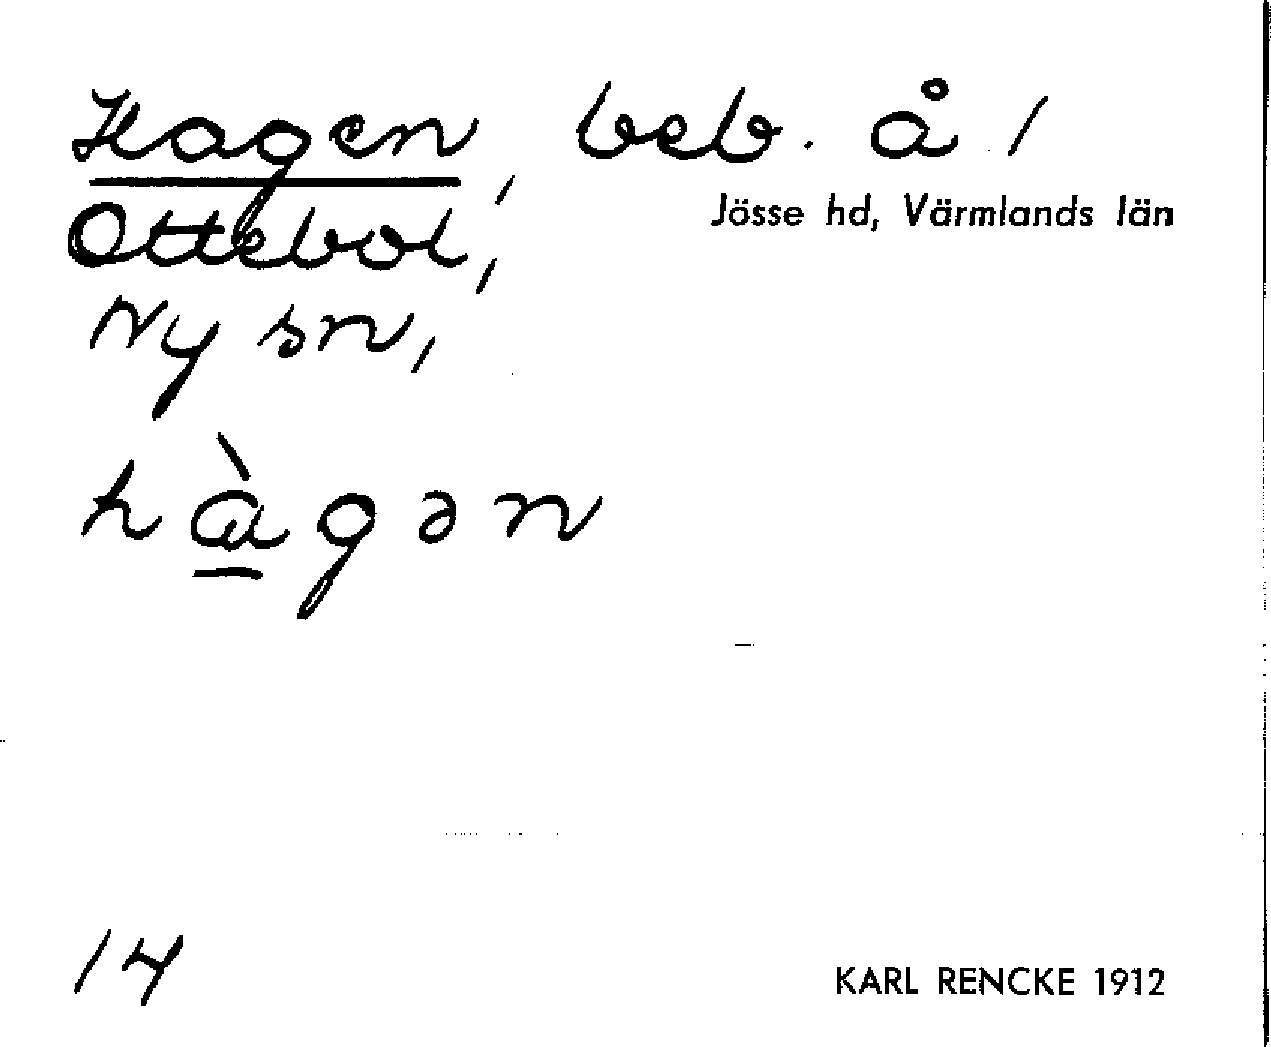 Hagen, beb. å /
Jösse hd, Värmlands län
Ottebol,
Ny sn,
hàgən
14
KARL RENCKE 1912